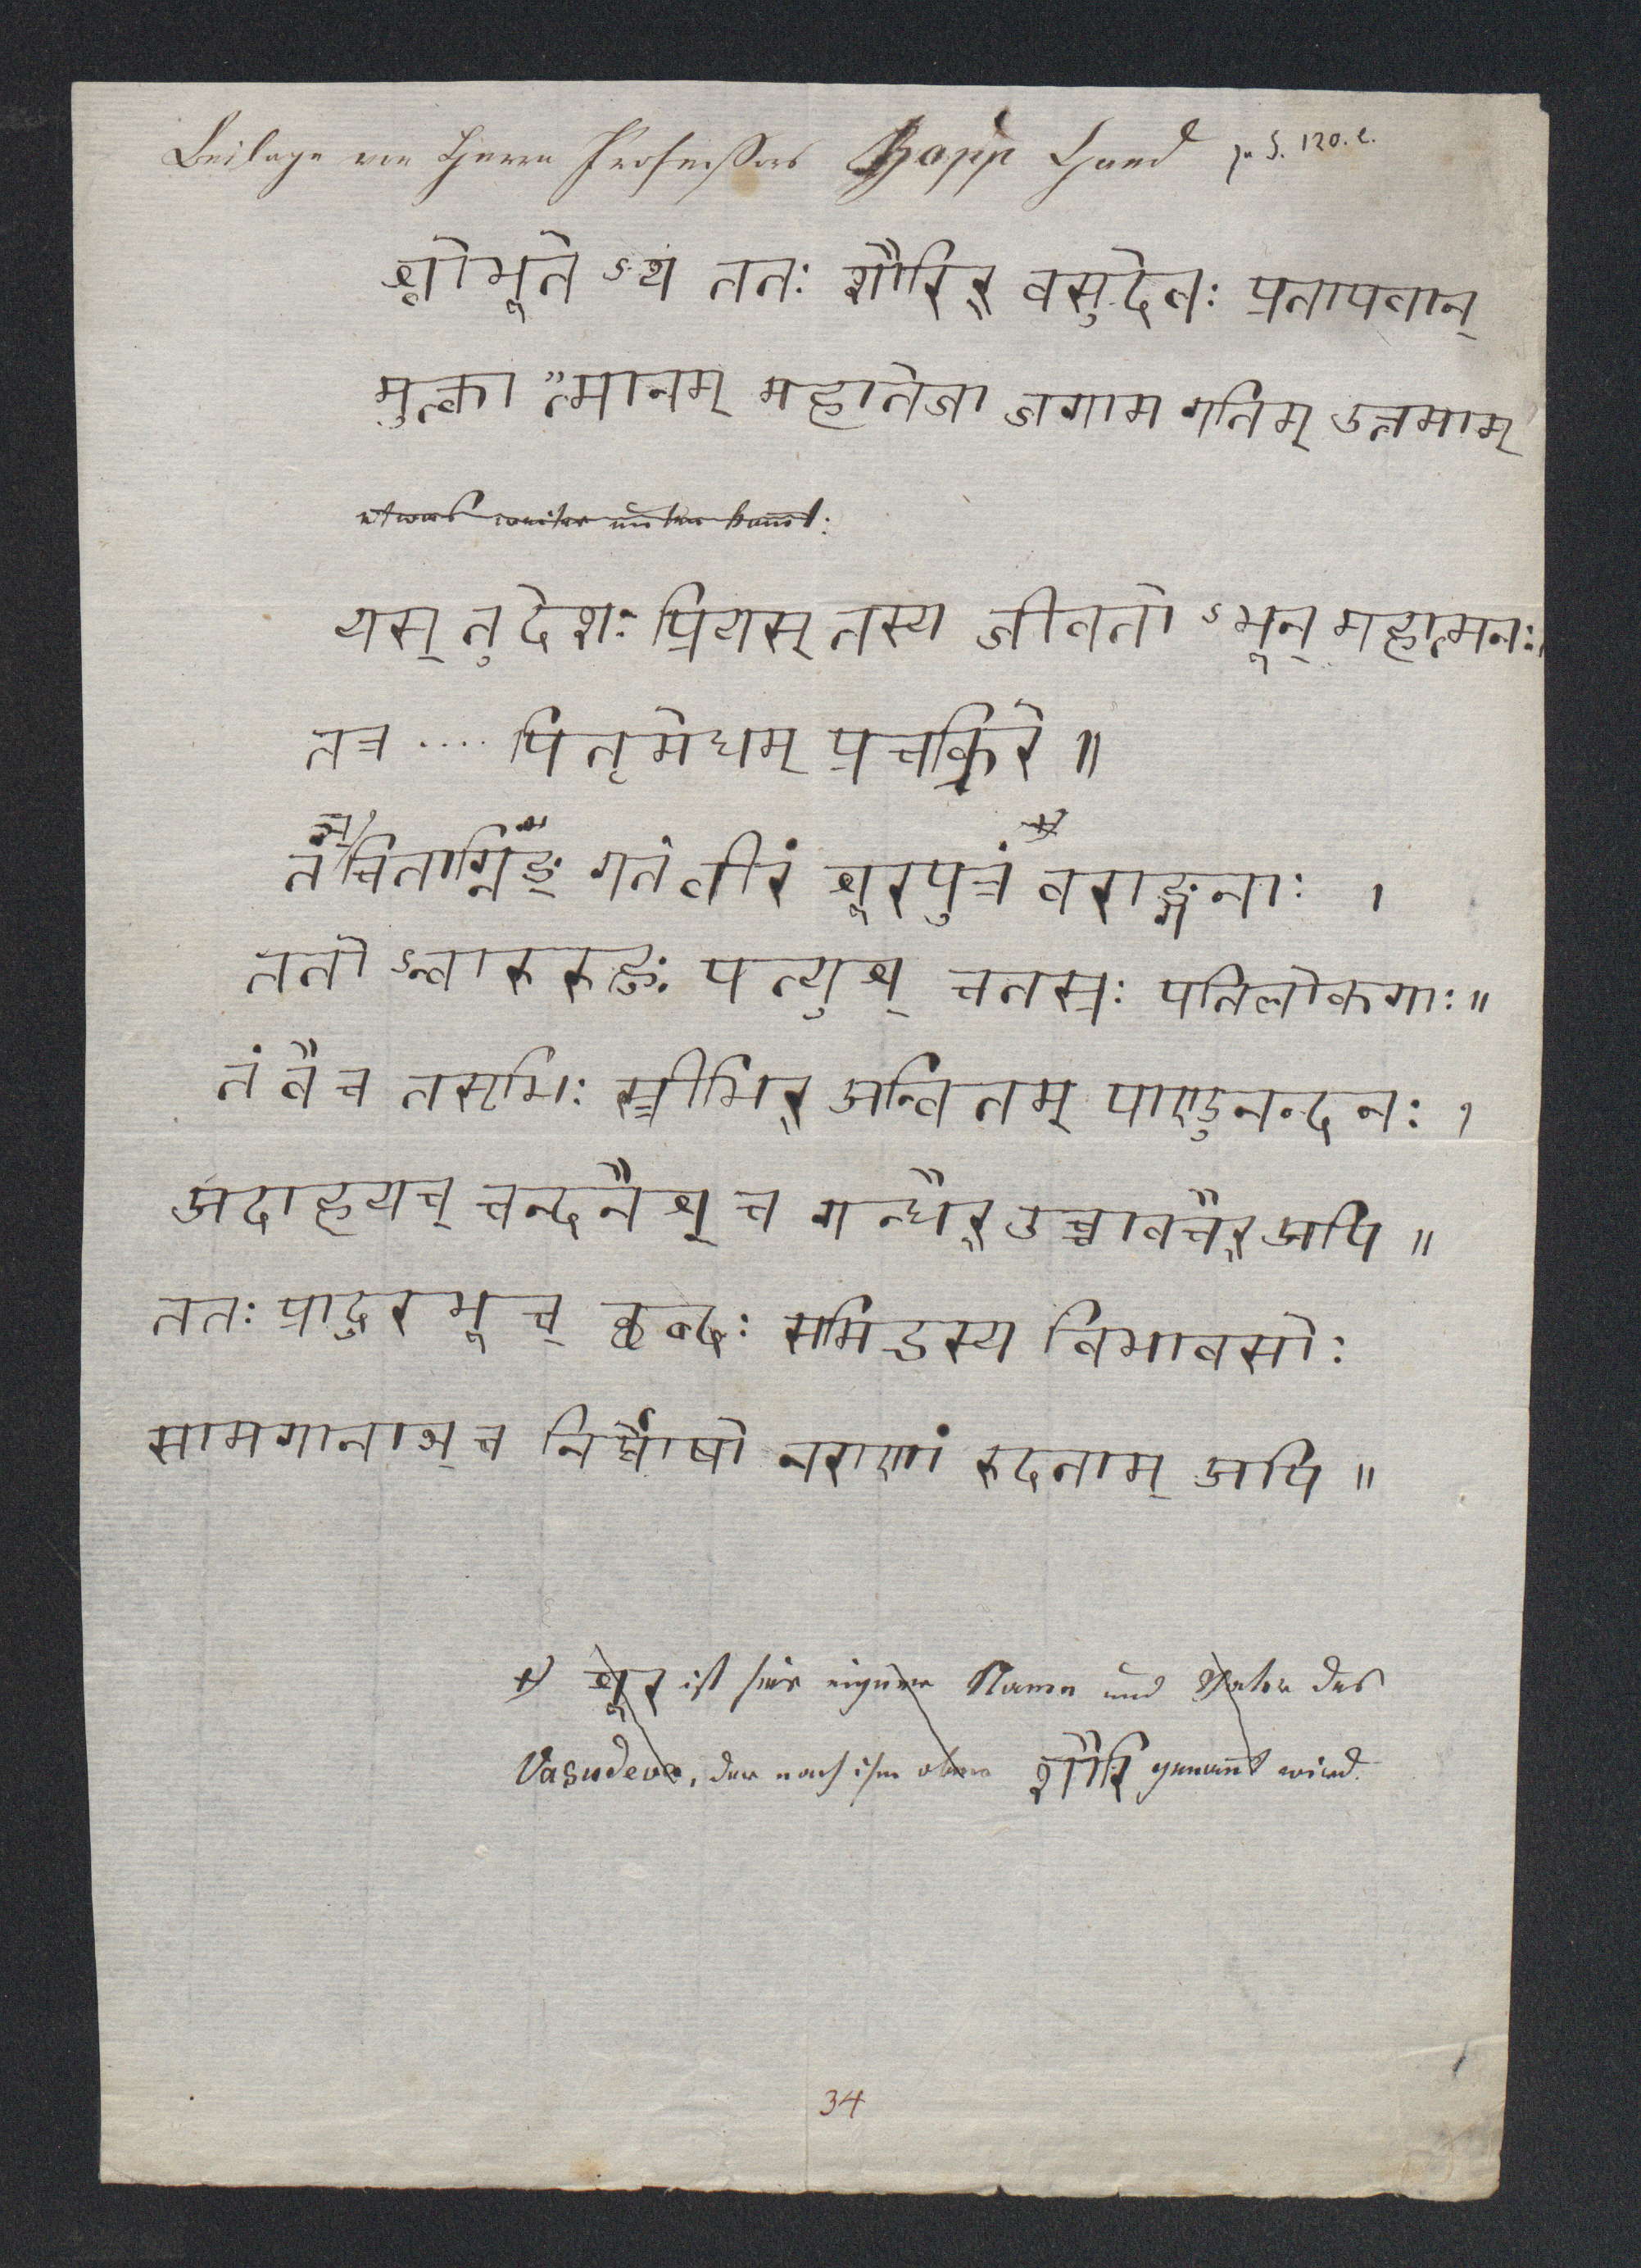 Beilage von Herrn Professors Bopp Hand zu S. 120. c.
श्वोभूते ऽथ ततः शौरिर् वसुदेवः प्रतापवान्
मुत्का "त्मानम् महातेजा जगाम गतिम् उत्तमाम्
etwas weiter unten komt:
यस् तु देशः प्रियस् तस्य जीवतो ऽभून् महात्मनः।
तत्र .... पितृमेधम् प्रचक्रिरे ॥
तं चिताग्निङ् गतं वीरं शूरपुत्रं वराङ्गनाः ।
ततो ऽन्वारुरुहुः पत्न्युश् चतस्रः पतिलोकगाः॥
तं वै च तसृभिः स्त्रीभिर् अन्वितम् पाण्डुनन्दनः ।
अदाहयच् चन्दनैश् च गन्धैर् उच्चावचैर् अपि ॥
ततः प्रादुरभूच् छब्दः समिद्धस्य विभावसोः
सामगानाञ् च निर्घोषो नराणां रुदताम् अपि ॥
*) शूर ist hier eigener Namen und Vater des
Vasudeva, der nach ihm oben शौरि genannt wird.
34